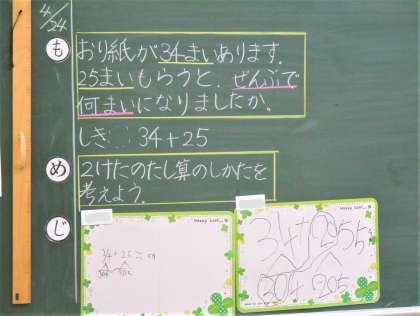 4/24
も
おり紙が34まいあります。
25まいもらうと、ぜんぶで
何まいになりましたか。
しき:34+25
め
2けたのたし算のしかたを
考えよう。
じ
34+25=
34+25